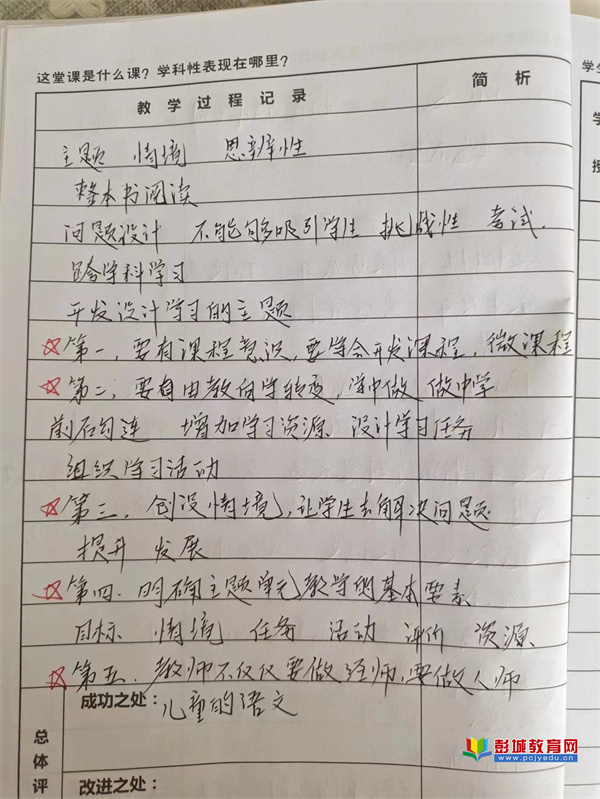 这堂课是什么课？学科性表现在哪里？
教学过程记录 简析
主题 情境 思辨性
整本书阅读
问题设计 不能够吸引学生 挑战性 考试.
跨学科学习
开发设计学习的主题
☆第一，要有课程意识，要学会开发课程，微课程
☆第二，要有由教向学转变，学中做 做中学
前后勾连 增加学习资源 设计学习任务
组织学习活动
☆第三，创设情境，让学生去解决问题
提升 发展
☆第四．明确主题单元教学的基本要素
目标 情境 任务 活动 评价 资源
☆第五．教师不仅仅要做经师，要做人师
成功之处：儿童的语文
总体评
改进之处：
学生
学
授
彭城教育网
www.pcjyedu.cn